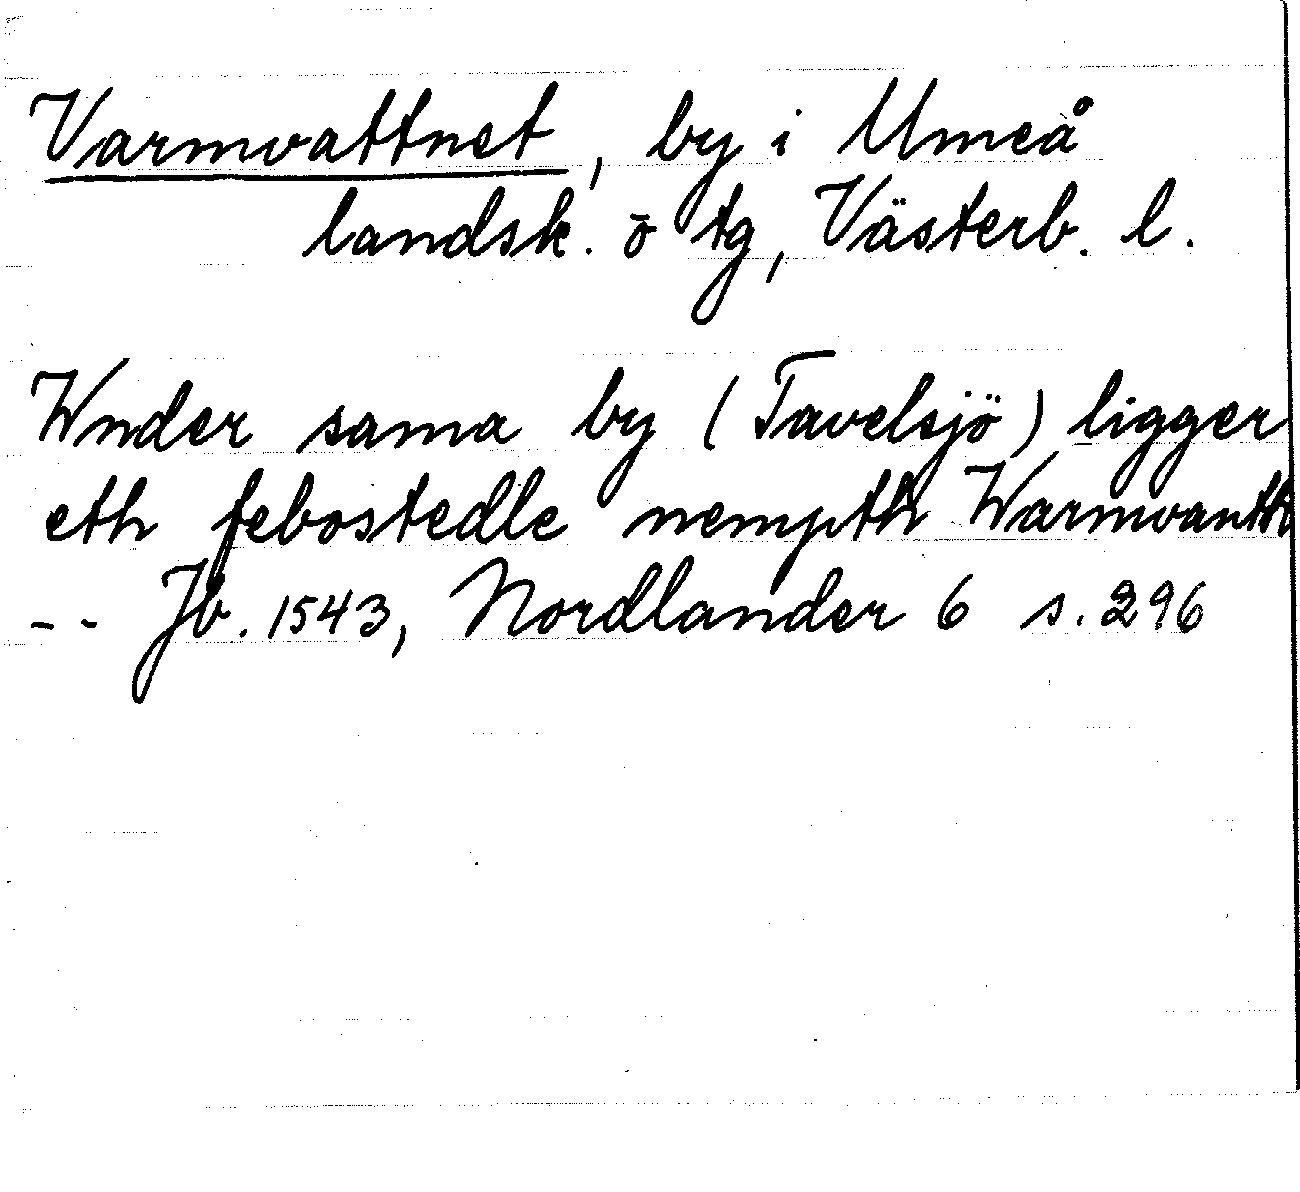 Varmvattnet, by i Umeå
landsk. o tg, Västerb. l.
Wnder sama by (Tavelsjö) ligger
eth febostedle nempth Warmvantn
-- Jb. 1543, Nordlander 6 s. 296